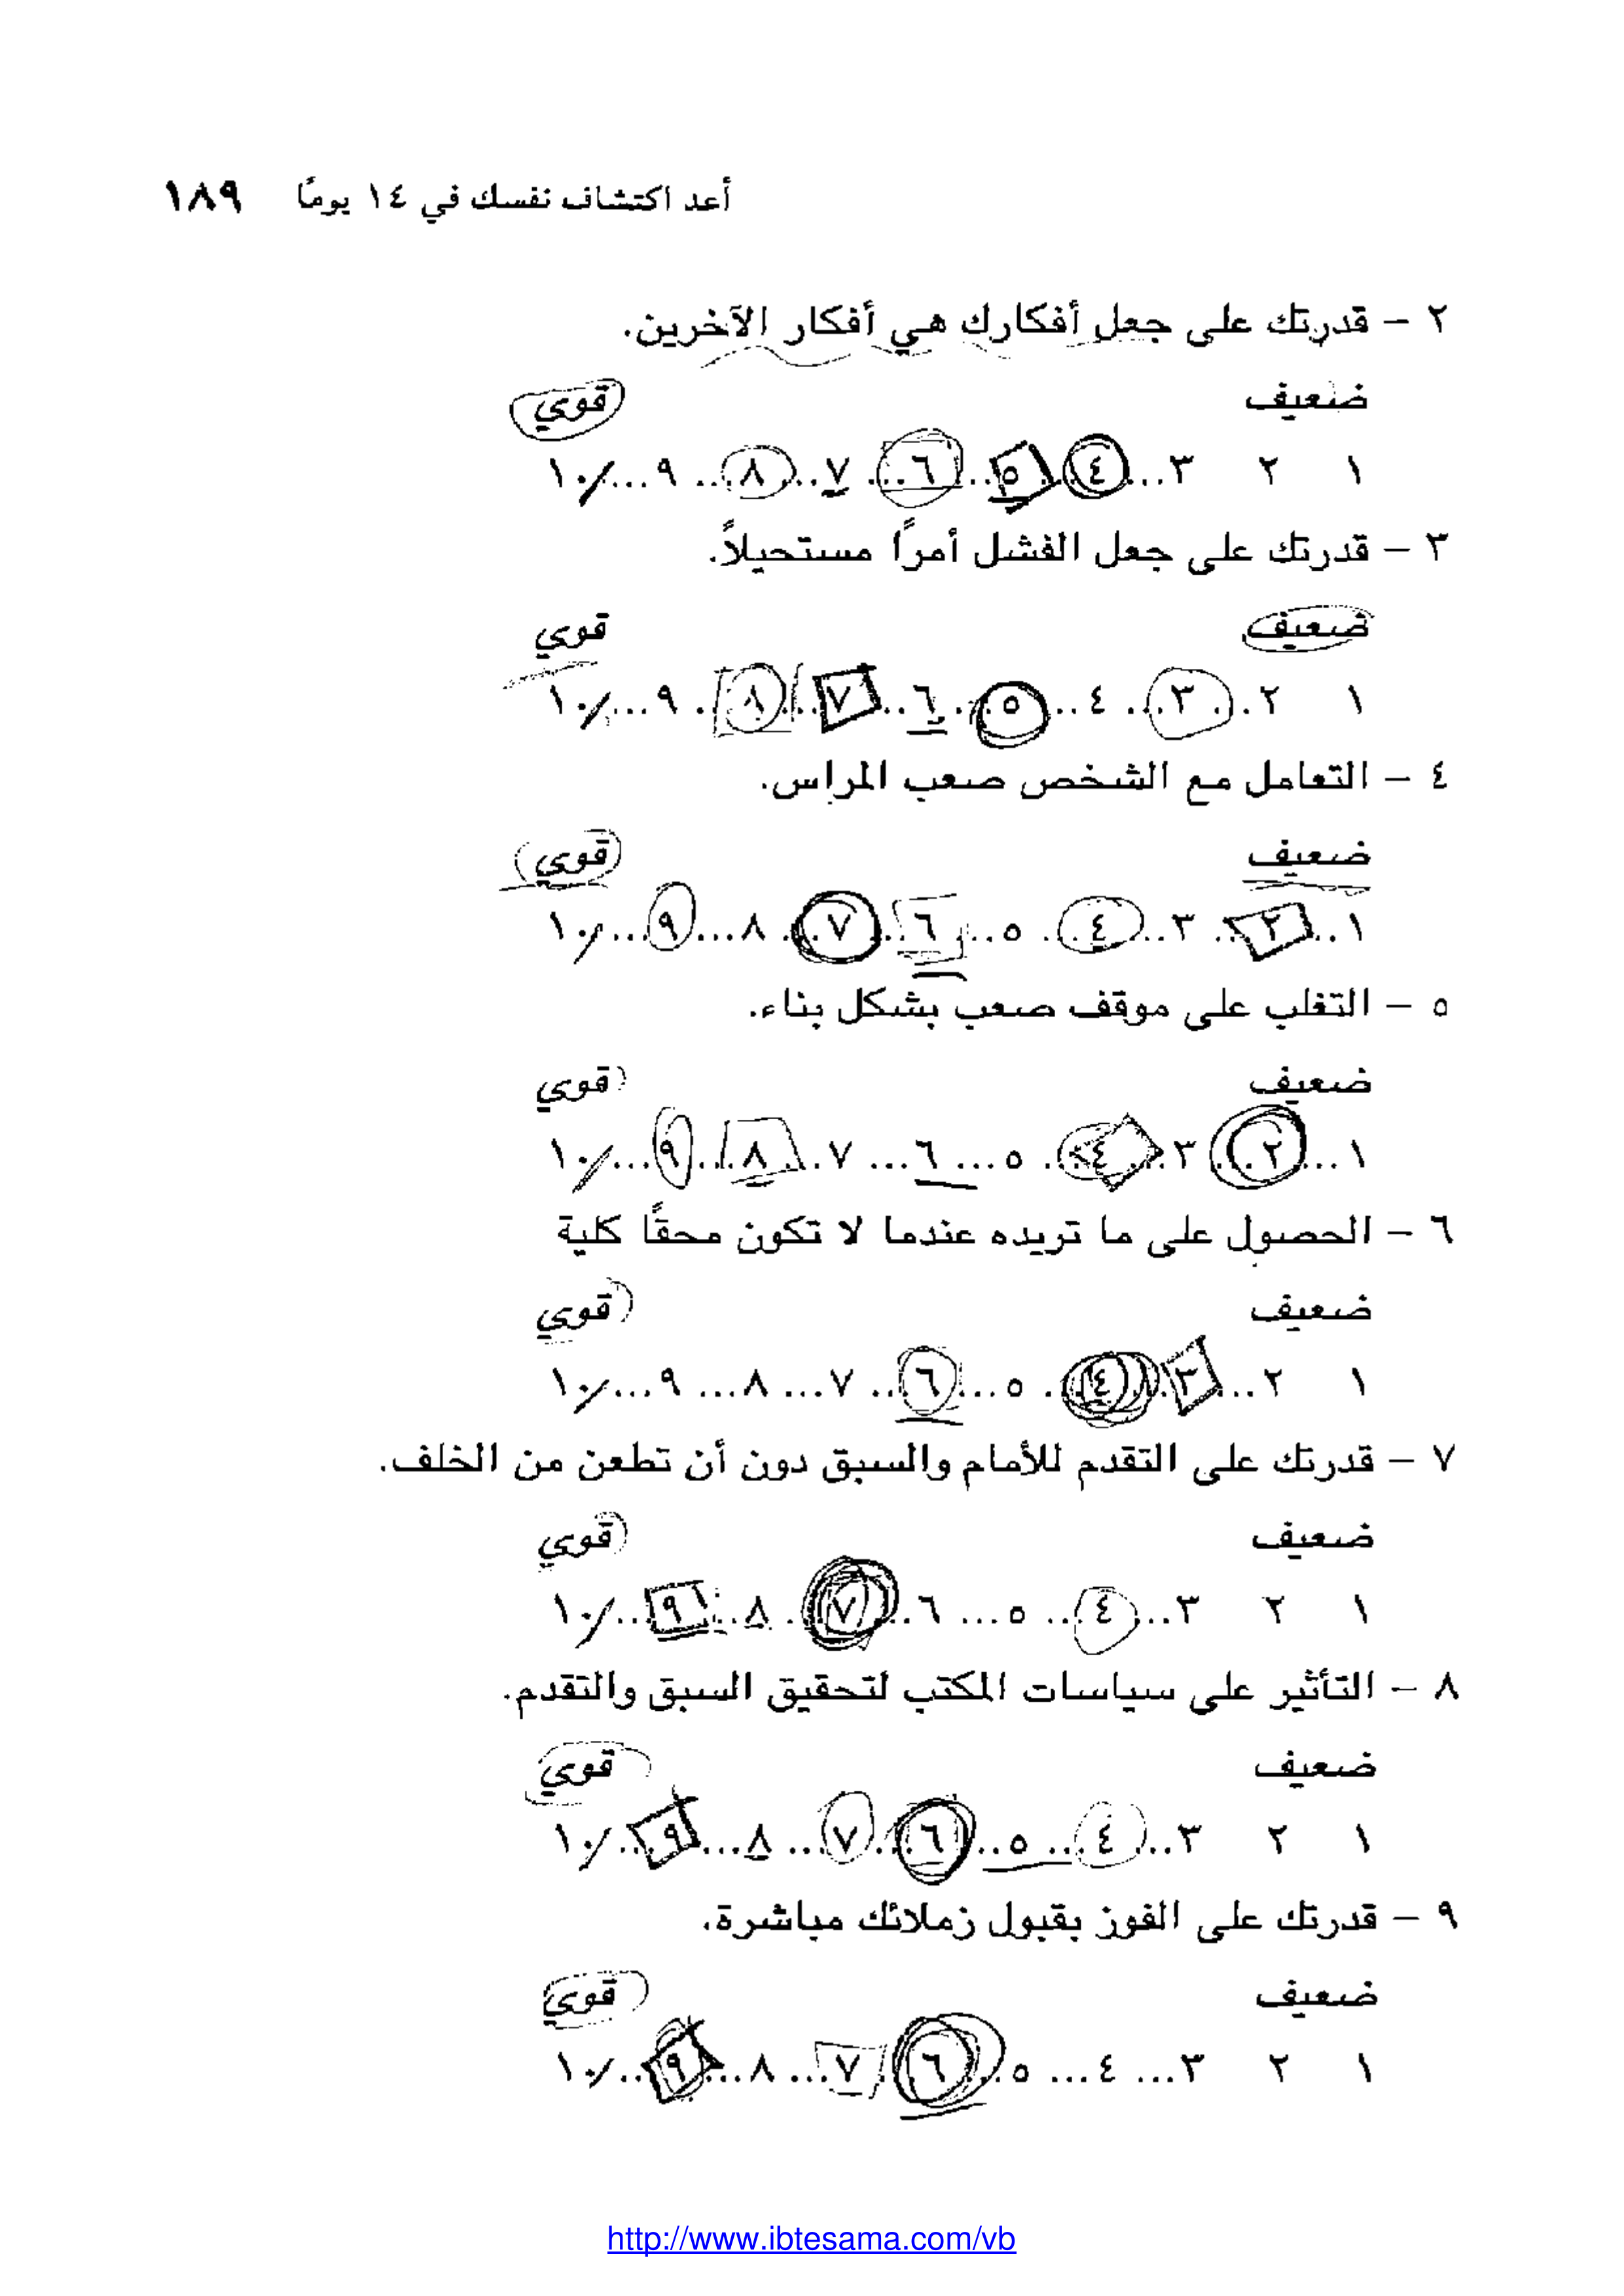 أعد اكتشاف نفسك في ١٤ يومًا ١٨٩
٢ – قدرتك على جعل أفكارك هي أفكار الآخرين.
ضعيف قوي
١ ٢ ٣...٤...٥...٦...٧...٨...٩...١٠
٣ – قدرتك على جعل الفشل أمرًا مستحيلاً.
ضعيف قوي
١ ٢...٣...٤...٥...٦...٧...٨...٩...١٠
٤ – التعامل مع الشخص صعب المراس.
ضعيف قوي
١...٢...٣...٤...٥...٦...٧...٨...٩...١٠
٥ – التغلب على موقف صعب بشكل بناء.
ضعيف قوي
١...٢...٣...٤...٥...٦...٧...٨...٩...١٠
٦ – الحصول على ما تريده عندما لا تكون محقًا كلية
ضعيف قوي
١ ٢...٣...٤...٥...٦...٧...٨...٩...١٠
٧ – قدرتك على التقدم للأمام والسبق دون أن تطعن من الخلف.
ضعيف قوي
١ ٢ ٣...٤...٥...٦...٧...٨...٩...١٠
٨ – التأثير على سياسات المكتب لتحقيق السبق والتقدم.
ضعيف قوي
١ ٢ ٣...٤...٥...٦...٧...٨...٩...١٠
٩ – قدرتك على الفوز بقبول زملائك مباشرة.
ضعيف قوي
١ ٢ ٣...٤...٥...٦...٧...٨...٩...١٠
http://www.ibtesama.com/vb